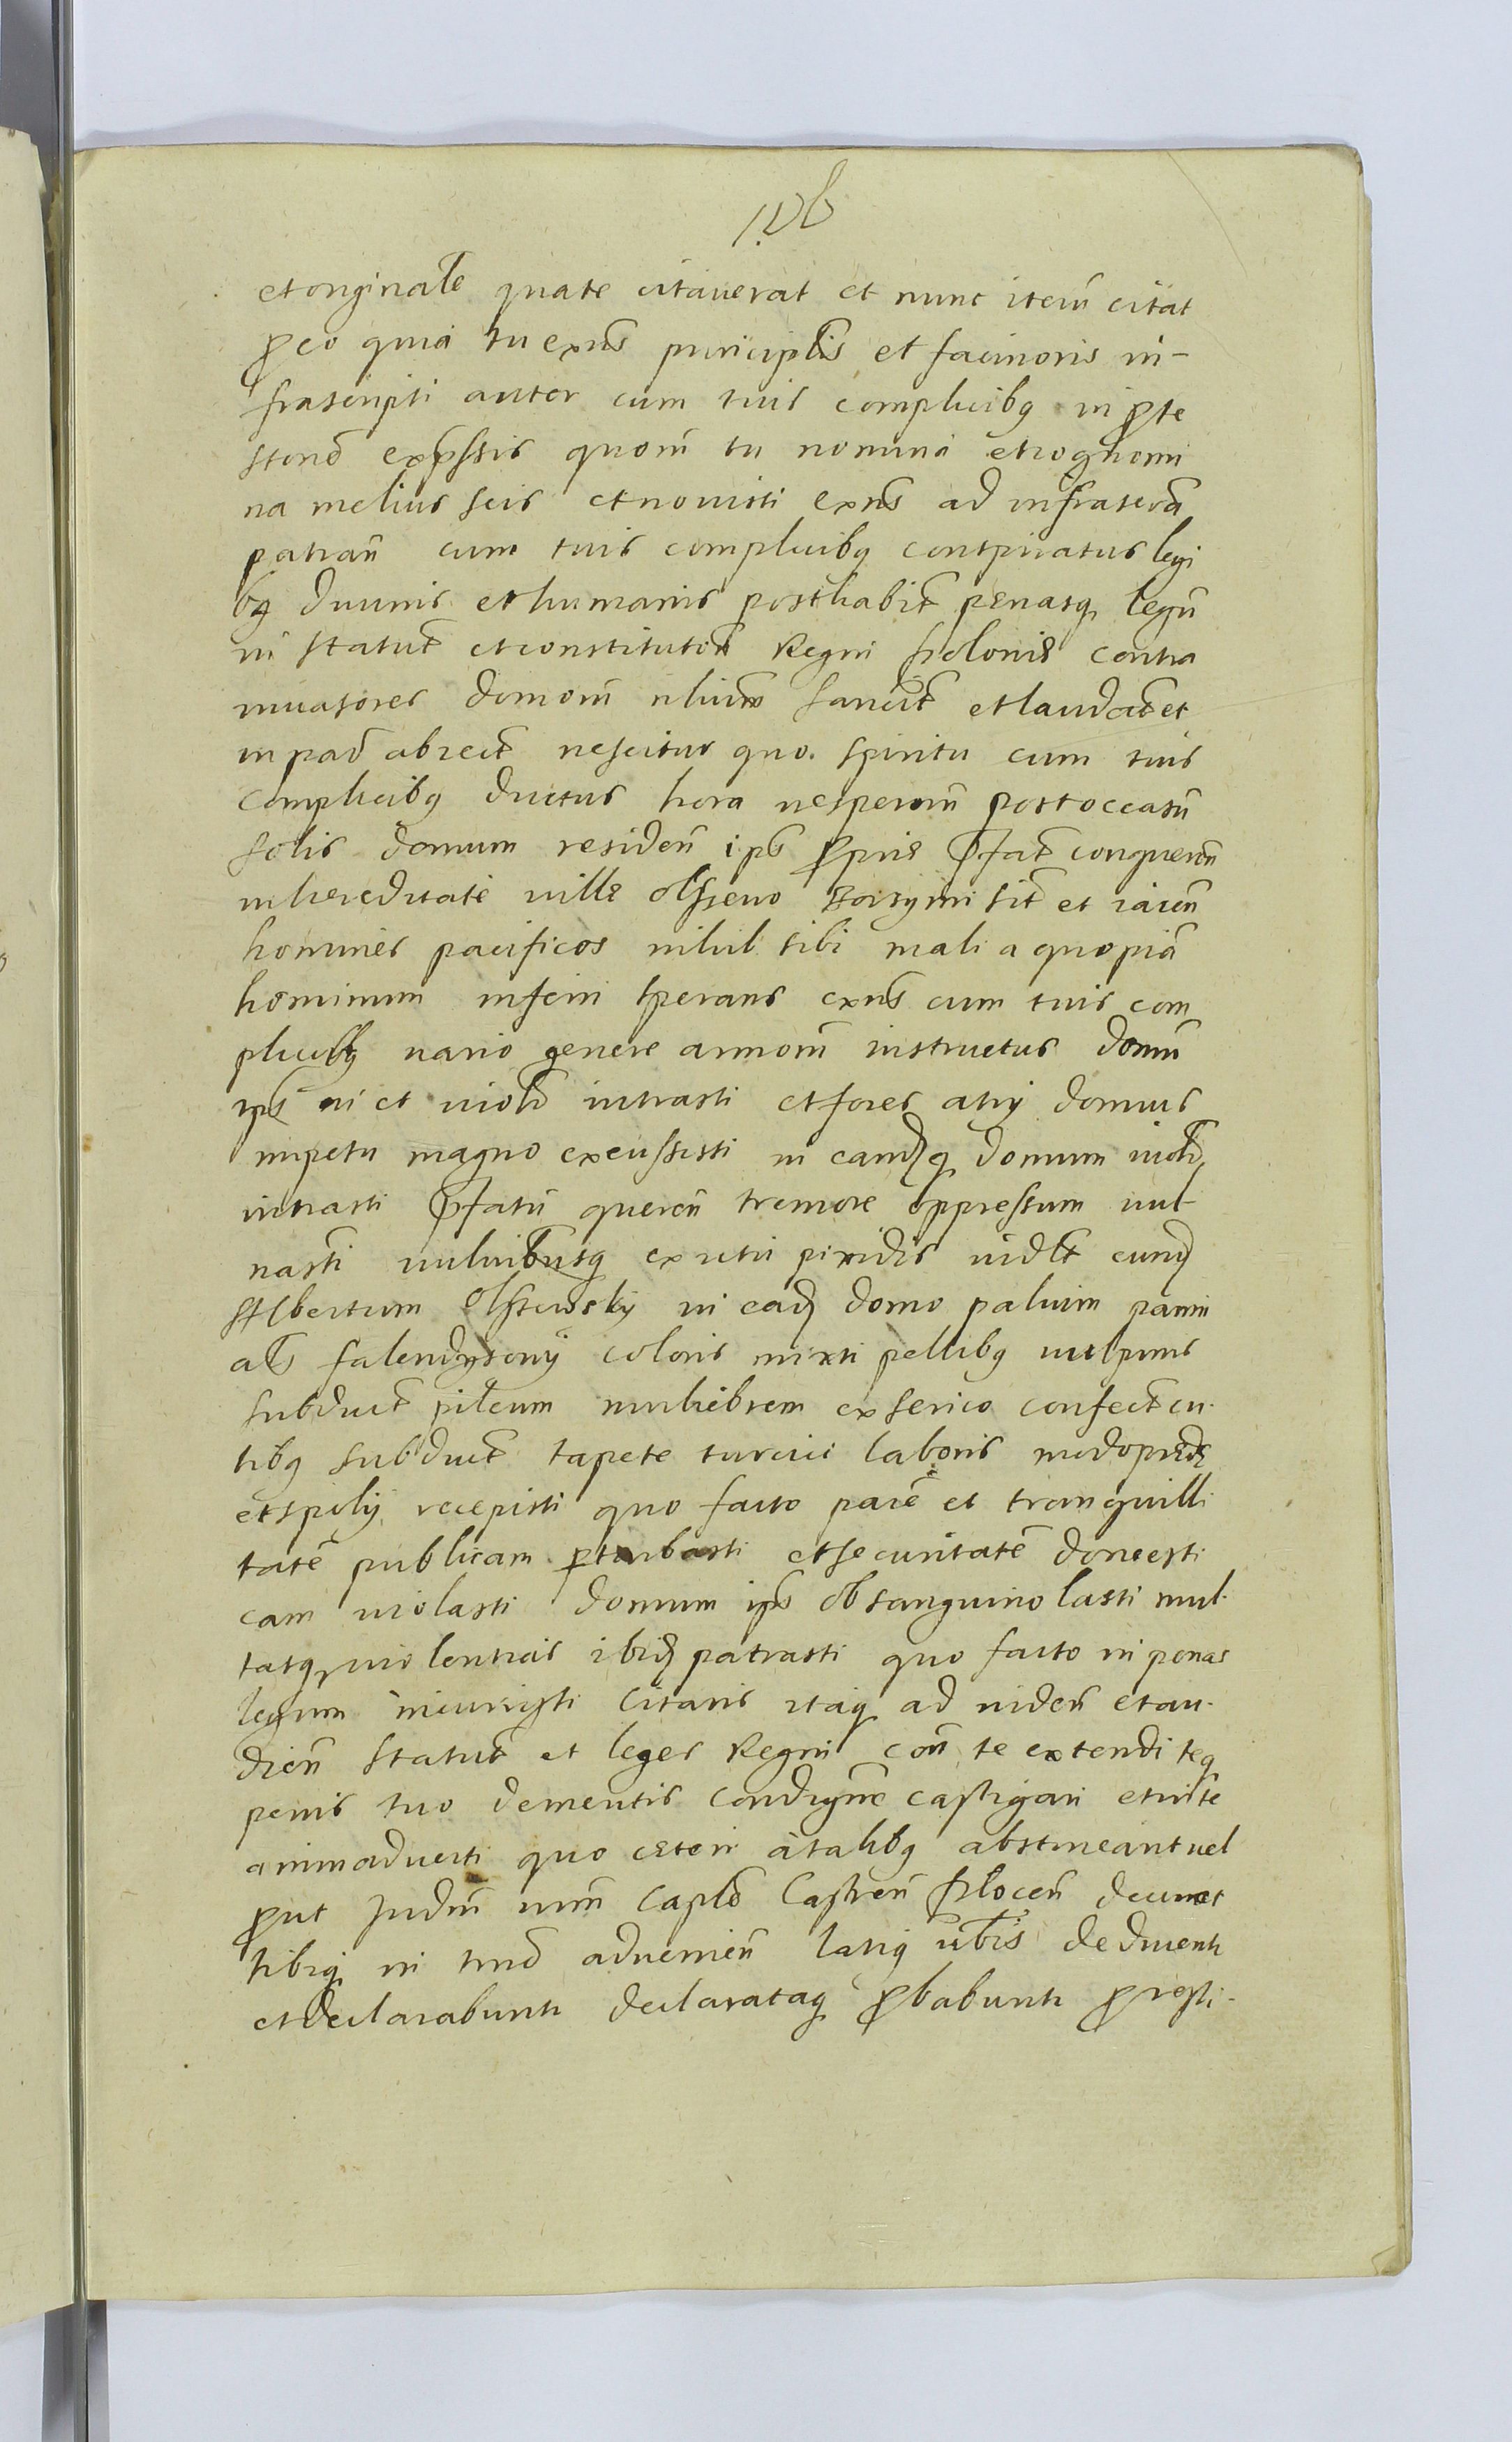 et originale quate citauerat et nunc iteru͂ citat
ꝓ eo quia tu exn͂s principlis et facinoris in-
frascripti autor cum tuis complicibꝫ in ꝓte
stone͂ exp͂ssis quoru͂ tu nomina et cognomi
na melius scis et nouisti exn͂s ad infrascra͂
patran͂ cum tuis complicibꝫ conspiratus legi
bꝫ diuinis et humanis posthabit͂ penasqꝫ legu͂
in statut͂ et constitution͂ Regni Polonię contra
inuasores domoru͂ nlium͂ sancit͂ et laudat͂ et
in pad͂ abiect͂ nescitur quo spiritu cum tuis
complicibꝫ ductus hora uesperoru͂ post occasu͂
solis domum residen͂ ips͂ ꝓprię p͂fat͂ conqueren͂
in hereditate uillę Olssewo Borzymi sit͂ et iacen͂
homines pacificos nihil sibi mali a quopia͂
hominum inferri sperans exn͂s cum tuis com
plicibꝫ uario genere armoru͂ instructus domu͂
ips͂ ui et uiol͂ intrasti et fores atrij domus
impetu magno excussisti in eandꝫqꝫ domum uiol͂
intrasti p͂fatu͂ queren͂ tremore oppressum uul
nasti uulneribusqꝫ ex ictu pixidis uidlt͂ eundꝫ
Albertum Olssewsky in eadꝫ domo palium panni
als͂ falendysowy coloris mixti pellibꝫ uulpinis
subduct͂ pileum muliebrem ex serico confect͂ cu-
tibꝫ subduct͂ tapete turcici laboris modo prędę
et spolij recepisti quo facto pace͂ et tranquilli
tate͂ publicam ꝑturbasti et securitate͂ domesti
cam uiolasti domum ips͂ obsanguinolasti mul-
tasqꝫ uiolentias ibidꝫ patrasti quo facto in penas
legum incurristi Citaris itaqꝫ ad uiden͂ et au-
dien͂ statut͂ et leges Regni con͂ te extendi teqꝫ
penis tuo dementis condigne͂ castigari et in te
animaduerti quo cęteri a talibꝫ abstineant uel
ꝓut Judm͂ nrm͂ Caple͂ Castren͂ Plocen͂ decernet
tibiqꝫ in tm͂o aduenien͂ latiqꝫ u͂bis deducentr
et declarabuntr declarataqꝫ ꝓbabuntr ꝓ resti-